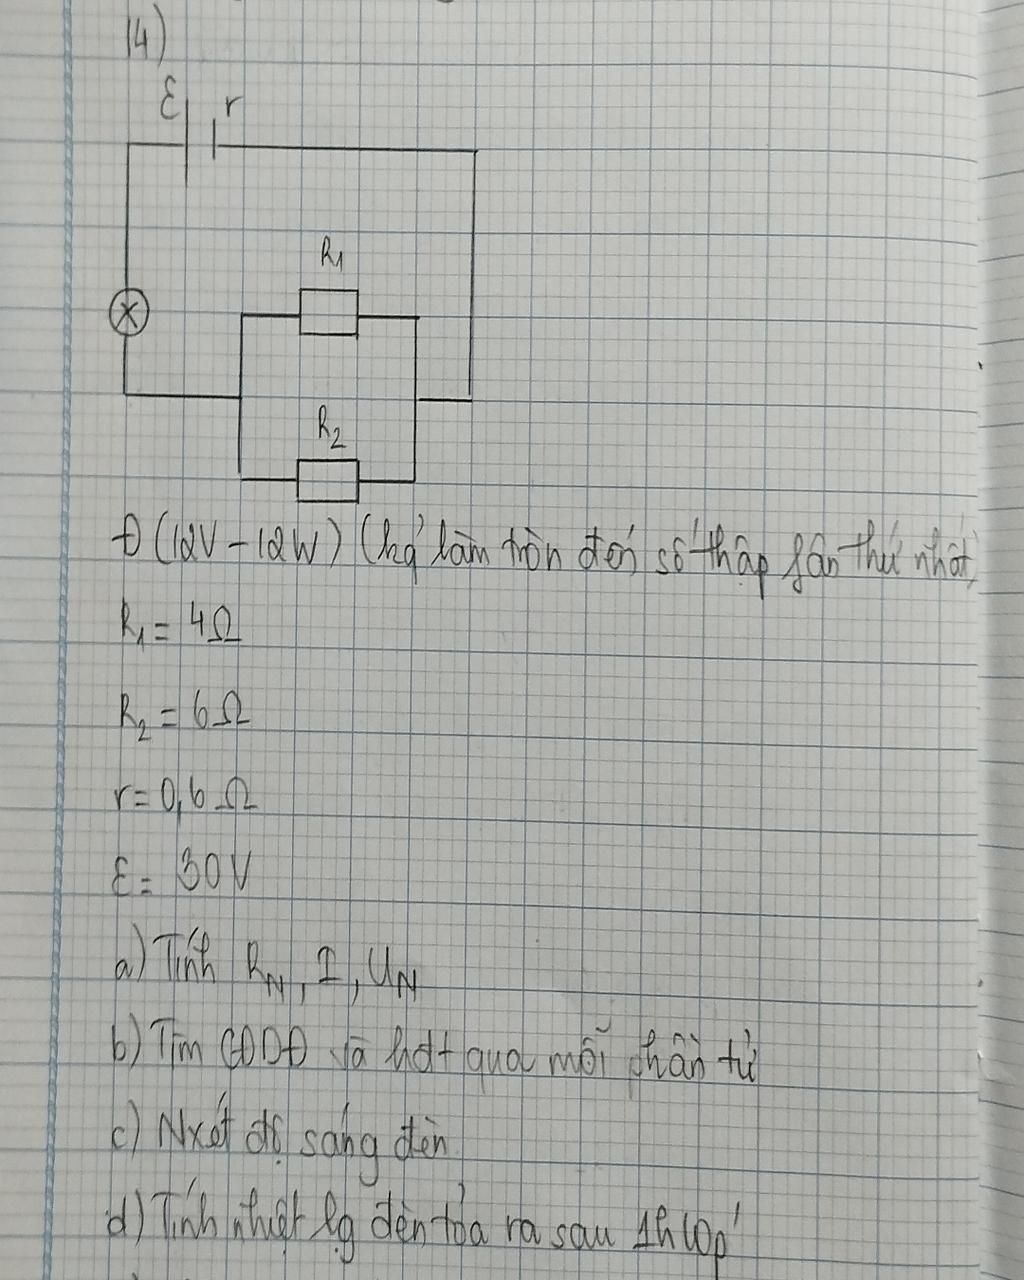 14)
ℰ r
R₁
R₂
Đ (12V - 12W) (kq' làm tròn đến số thập fân thứ nhất)
R₁ = 4Ω
R₂ = 6Ω
r = 0,6 Ω
ℰ = 30V
a) Tính R_N, I, U_N
b) Tìm CĐDĐ và hđt qua mỗi phần tử
c) Nxét độ sáng đèn
d) Tính nhiệt lg đèn tỏa ra sau 1h10p'